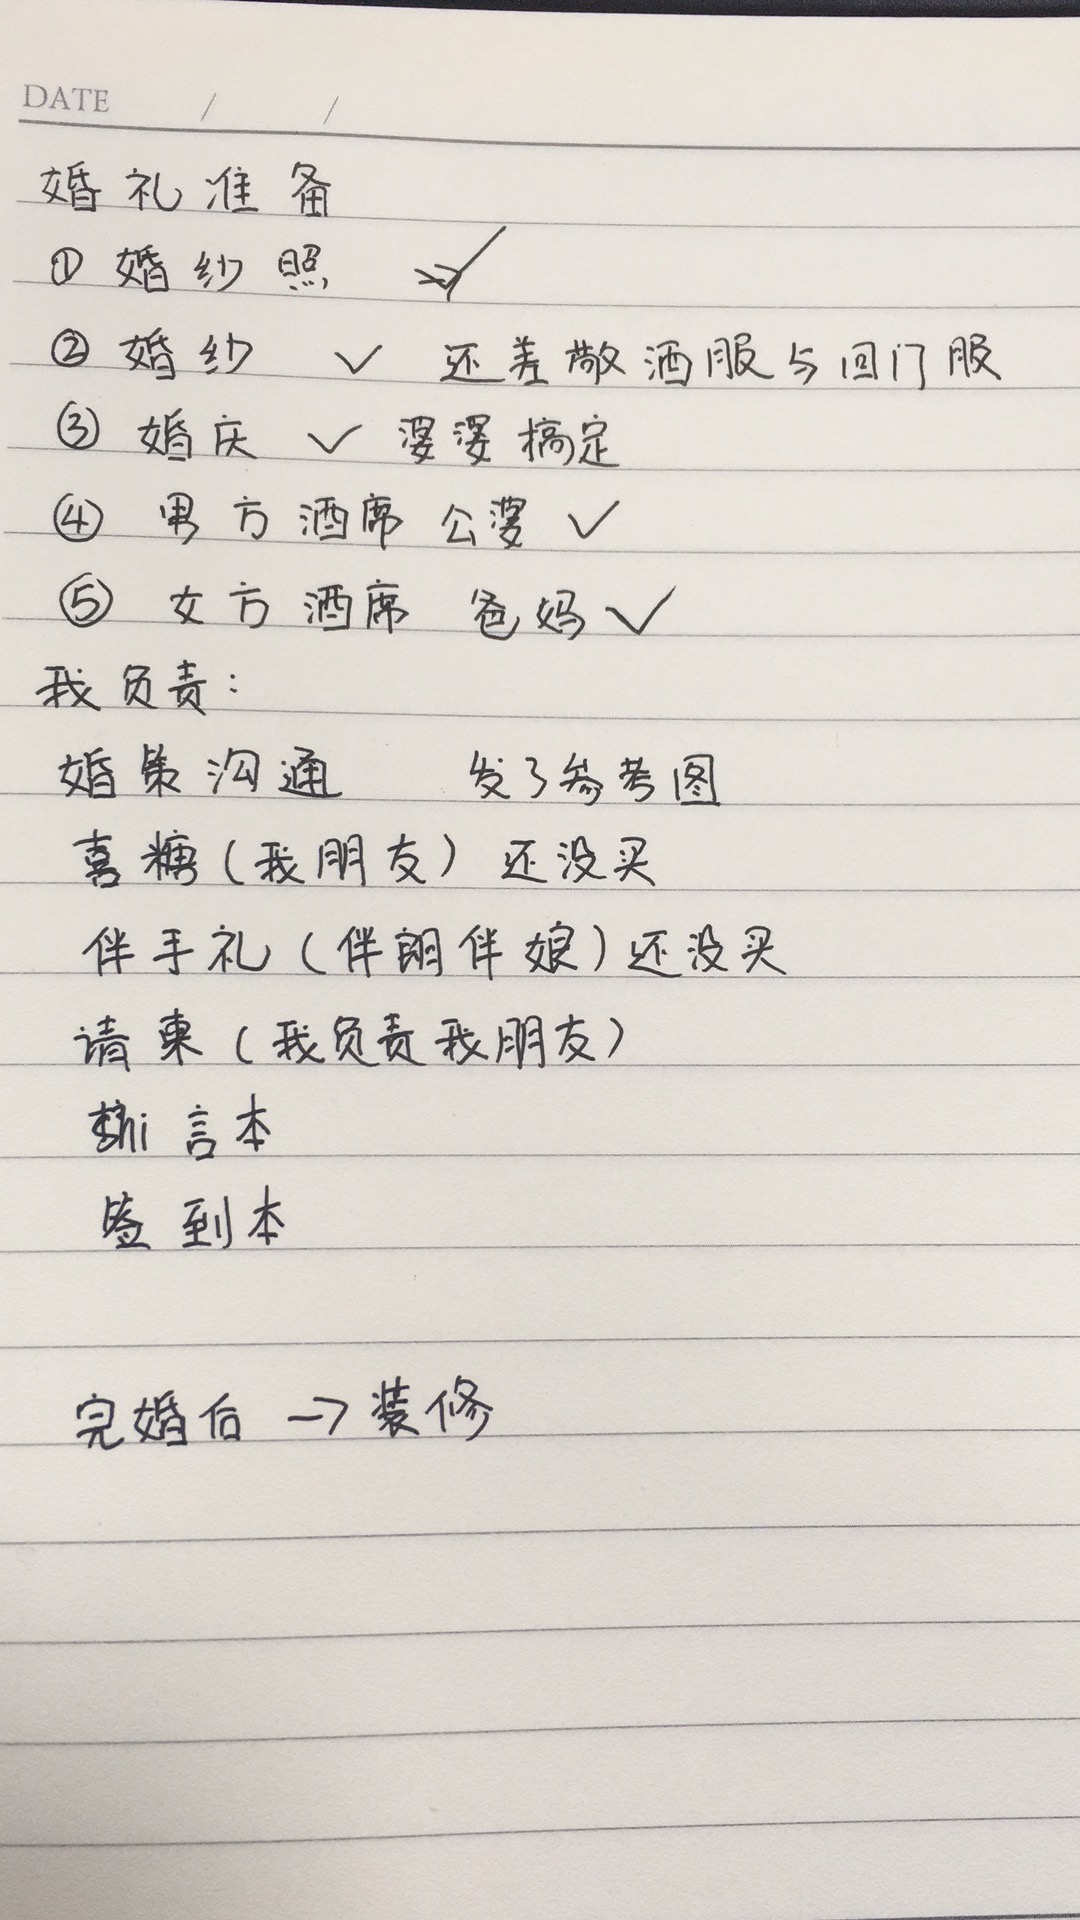 DATE / /
婚礼准备
① 婚纱照
② 婚纱 ✓ 还差敬酒服与回门服
③ 婚庆 ✓ 婆婆搞定
④ 男方酒席 公婆 ✓
⑤ 女方酒席 爸妈 ✓
我负责:
婚策沟通 发了参考图
喜糖(我朋友)还没买
伴手礼(伴郎伴娘)还没买
请柬(我负责我朋友)
shi言本
签到本
完婚后 → 装修